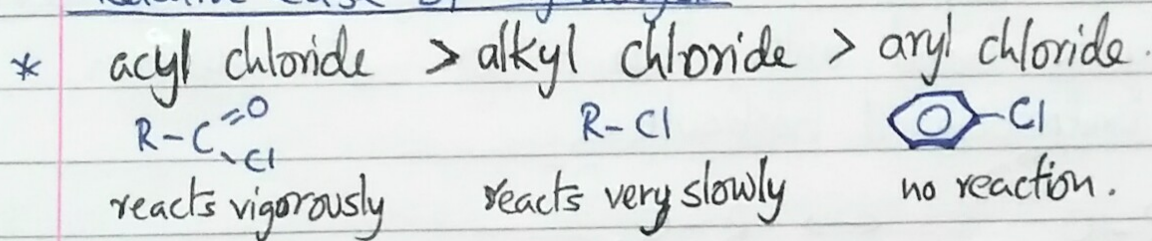 * acyl chloride > alkyl chloride > aryl chloride.
R-C=O Cl R-Cl Cl
reacts vigorously reacts very slowly no reaction.